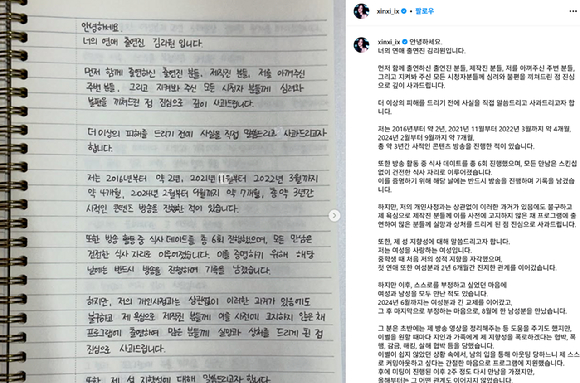 안녕하세요.
너의 연애 출연진 김리원 입니다.
먼저 함께 출연하신 출연진 분들, 제작진 분들, 저를 아껴주신
주변 분들, 그리고 지켜봐 주신 모든 시청자 분들께 심려와
불편을 끼쳐드린 점 진심으로 깊이 사과드립니다.
더 이상의 피해를 드리기 전에 사실을 직접 말씀드리고 사과드리고자
합니다.
저는 2016년부터 약 2년, 2021년 11월부터 2022년 3월까지
약 4개월, 2024년 2월부터 9월까지 약 7개월, 총 약 3년간
사적인 콘텐츠 방송을 진행한 적이 있습니다.
또한 방송 활동 중 식사 데이트를 총 6회 진행했으며, 모든 만남은
건전한 식사 자리로 이루어졌습니다. 이를 증명하기 위해 해당
날에는 반드시 방송을 진행하여 기록을 남겼습니다.
하지만, 저의 개인사정과는 상관없이 이러한 과거가 있음에도
불구하고 제 욕심으로 제작진 분들께 이를 사전에 고지하지 않은 채
프로그램에 출연하여 많은 분들께 실망과 상처를 드리게 된 점
진심으로 사과드립니다.
또한 제 성 지향성에 대해 말씀드리고자 합니다.
xinxi_ix • 팔로우
xinxi_ix 안녕하세요.
너의 연애 출연진 김리원입니다.
먼저 함께 출연하신 출연진 분들, 제작진 분들, 저를 아껴주신 주변 분들,
그리고 지켜봐 주신 모든 시청자분들께 심려와 불편을 끼쳐드린 점 진심
으로 깊이 사과드립니다.
더 이상의 피해를 드리기 전에 사실을 직접 말씀드리고 사과드리고자 합니다.
저는 2016년부터 약 2년, 2021년 11월부터 2022년 3월까지 약 4개월,
2024년 2월부터 9월까지 약 7개월,
총 약 3년간 사적인 콘텐츠 방송을 진행한 적이 있습니다.
또한 방송 활동 중 식사 데이트를 총 6회 진행했으며, 모든 만남은 스킨십
없이 건전한 식사 자리로 이루어졌습니다.
이를 증명하기 위해 해당 날에는 반드시 방송을 진행하며 기록을 남겼습니다.
하지만, 저의 개인사정과는 상관없이 이러한 과거가 있음에도 불구하고
제 욕심으로 제작진 분들께 이를 사전에 고지하지 않은 채 프로그램에 출
연하여 많은 분들께 실망과 상처를 드리게 된 점 진심으로 사과드립니다.
또한, 제 성 지향성에 대해 말씀드리고자 합니다.
저는 여성을 사랑하는 여성입니다.
중학생 때 처음 저의 성적 지향을 자각했으며,
첫 연애 또한 여성분과 2년 6개월간 진지한 관계를 이어갔습니다.
하지만 이후, 스스로를 부정하고 싶었던 마음에
여성과 남성을 모두 만난 적도 있습니다.
2024년 6월까지는 여성분과 긴 교제를 이어왔고,
그 후 마지막으로 부정하는 마음으로, 8월에 한 남성분을 만났습니다.
그 분은 초반에는 제 방송 영상을 정리해주는 등 도움을 주기도 했지만,
이별을 원할 때마다 지인과 가족에게 제 성향을 폭로하겠다는 협박, 폭
행, 감금, 해킹, 살해 협박 등을 당했습니다.